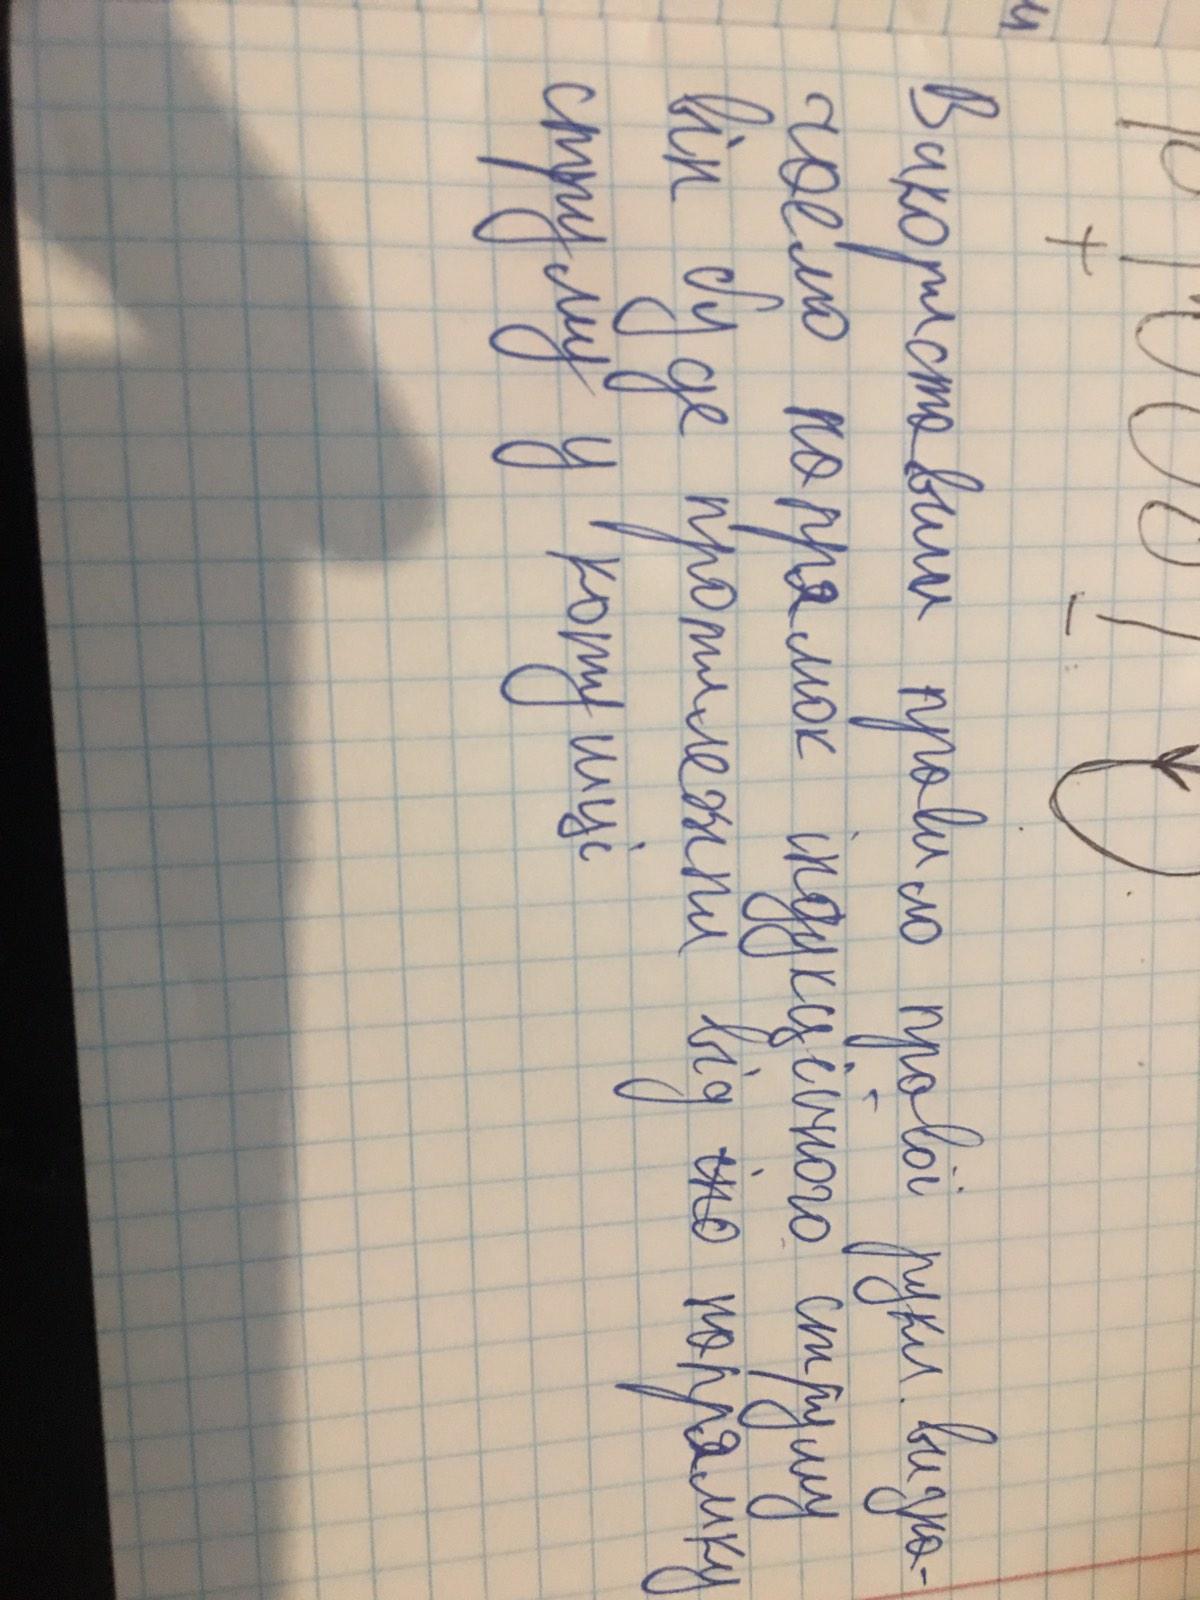 + -
Використовыми правило правої руки визна-
чаемо напрямок індукційного струму
він буде протилежни від но напрямку
струму у котушці